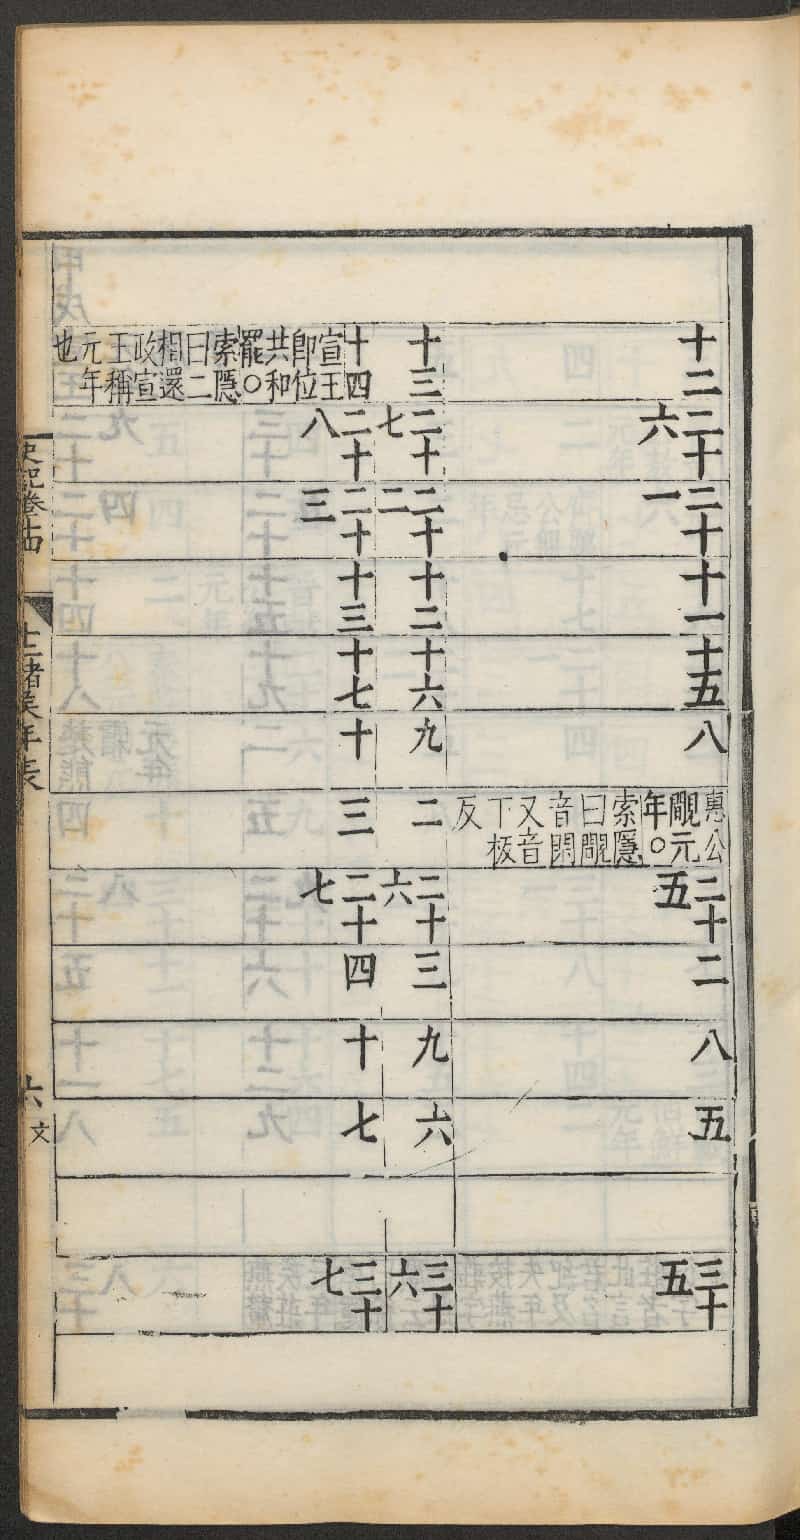 十二
二十
六
二十
一
十一
十五
八
惠公
覵元
年○
索隱
曰覵
音閑
又音
下板
反
二十
五
二
八
五
三十
五
十三
二十
七
二十
二
十二
十六
九
二
二十
六
三
九
六
三十
六
十四
宣王
即位
共和
罷○
索隱
曰二
相還
政宣
王稱
元年
也
二十
八
二十
三
十三
十七
十
三
二十
七
四
十
七
三十
七
史記卷十四
十二諸侯年表
六
文